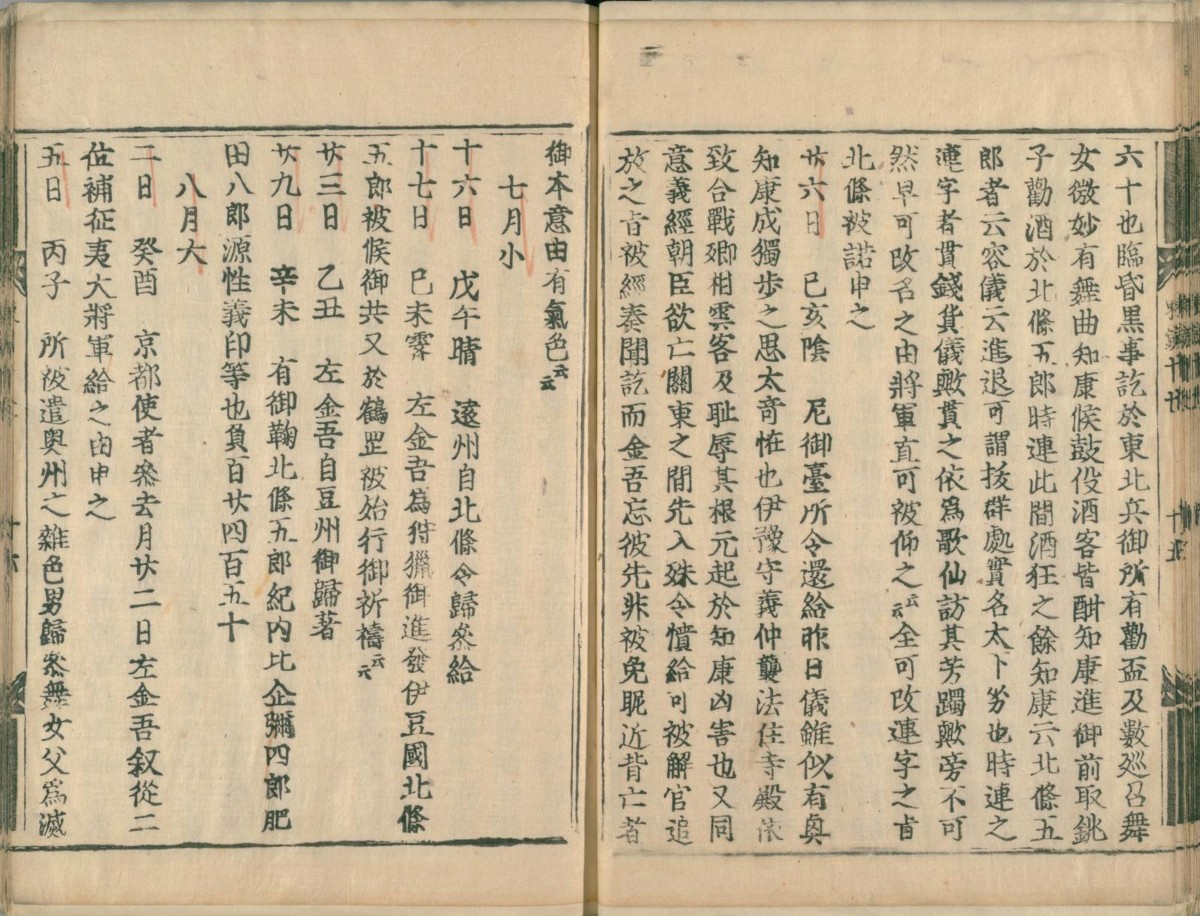 六十也臨昏黒事訖於東北兵御所有勸盃及數巡召舞
女微妙有舞曲知康候鼓役酒客皆酣知康進御前取銚
子勸酒於北條五郎時連此間酒狂之餘知康云北條五
郎者云容儀云進退可謂拔群處實名太下劣也時連之
連字者貫錢貨儀歟貫之依爲歌仙訪其芳躅歟旁不可
然早可改名之由將軍直可被仰之云云全可改連字之旨
北條被諾申之
廿六日　己亥陰　尼御臺所令還給昨日儀雖似有興
知康成獨歩之思太奇恠也伊豫守義仲襲法住寺殿依
致合戰卿相雲客及耻辱其根元起於知康凶害也又同
意義經朝臣欲亡關東之間先人殊令憤給可被解官追
放之旨被經奏聞訖而金吾忘彼先非被免昵近背亡者
御本意由有氣色云云
七月小
十六日　戊午晴　遠州自北條令歸參給
十七日　己未霽　左金吾爲狩獵御進發伊豆國北條
五郎被候御共又於鶴罡被始行御祈禱云云
廿三日　乙丑　左金吾自豆州御歸著
廿九日　辛未　有御鞠北條五郎紀内比企彌四郎肥
田八郎源性義印等也負百廿四百五十
八月大
二日　癸酉　京都使者參去月廿二日左金吾叙從二
位補征夷大將軍給之由申之
五日　丙子　所被遣奥州之雜色男歸參舞女父爲滅